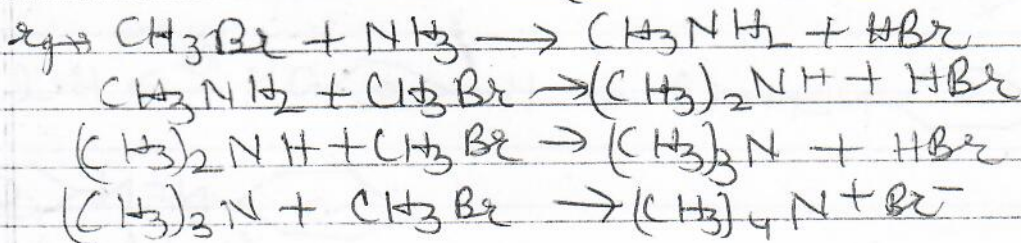 eg→ CH3Br + NH3 → CH3NH2 + HBr
CH3NH2 + CH3Br → (CH3)2NH + HBr
(CH3)2NH + CH3Br → (CH3)3N + HBr
(CH3)3N + CH3Br → (CH3)4N+Br⁻